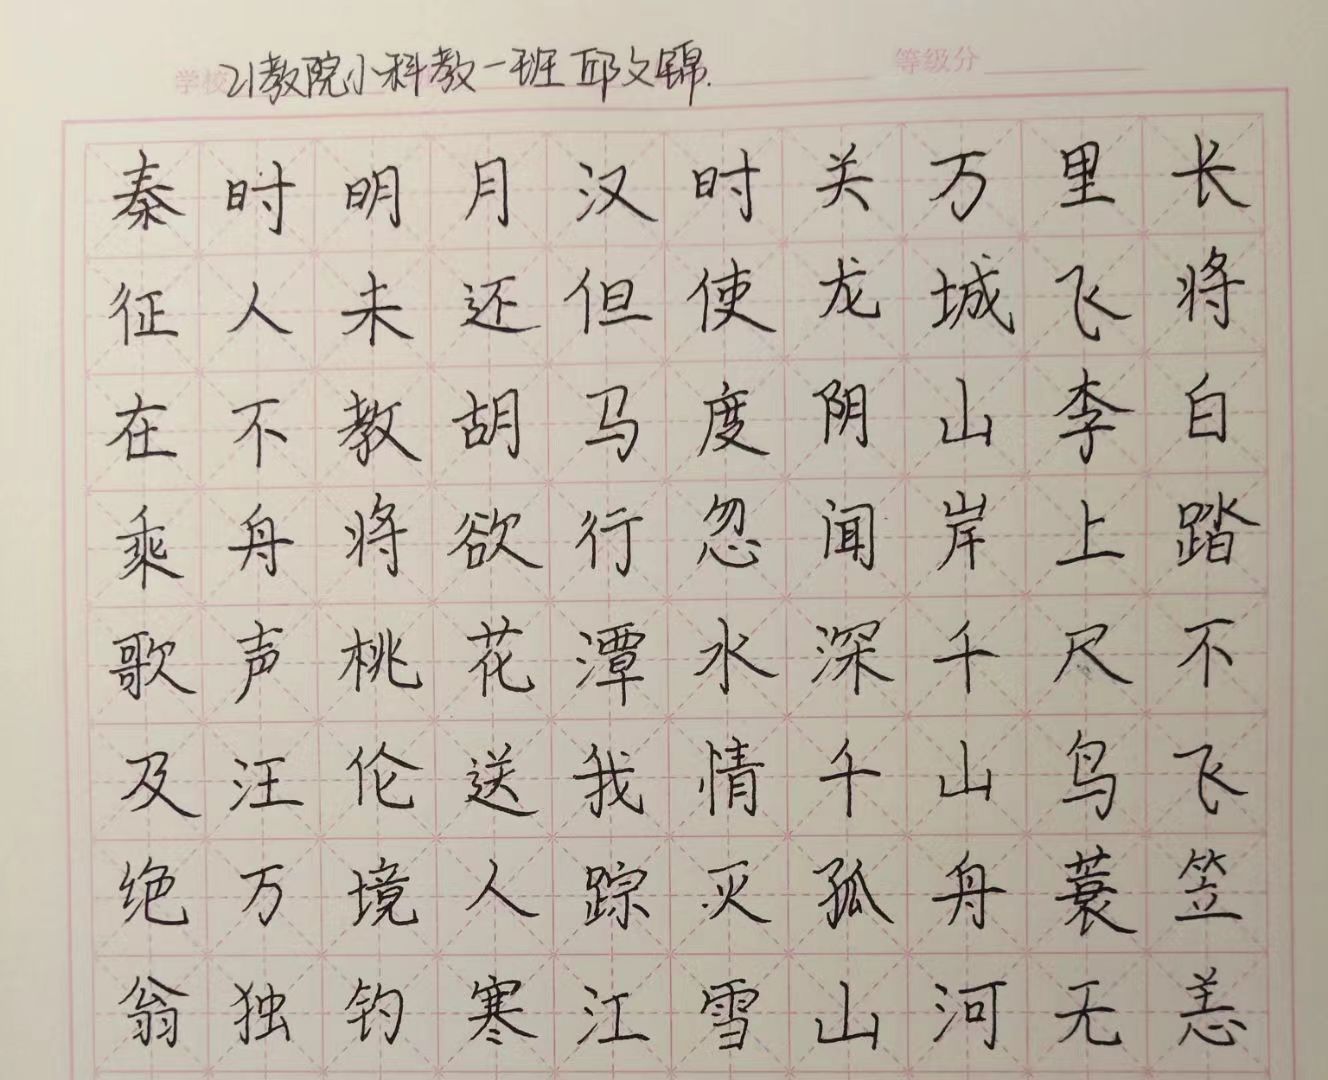 学校 21教院小科教一班 邱文锦. 等级分
秦时明月汉时关万里长
征人未还但使龙城飞将
在不教胡马度阴山李白
乘舟将欲行忽闻岸上踏
歌声桃花潭水深千尺不
及汪伦送我情千山鸟飞
绝万境人踪灭孤舟蓑笠
翁独钓寒江雪山河无恙